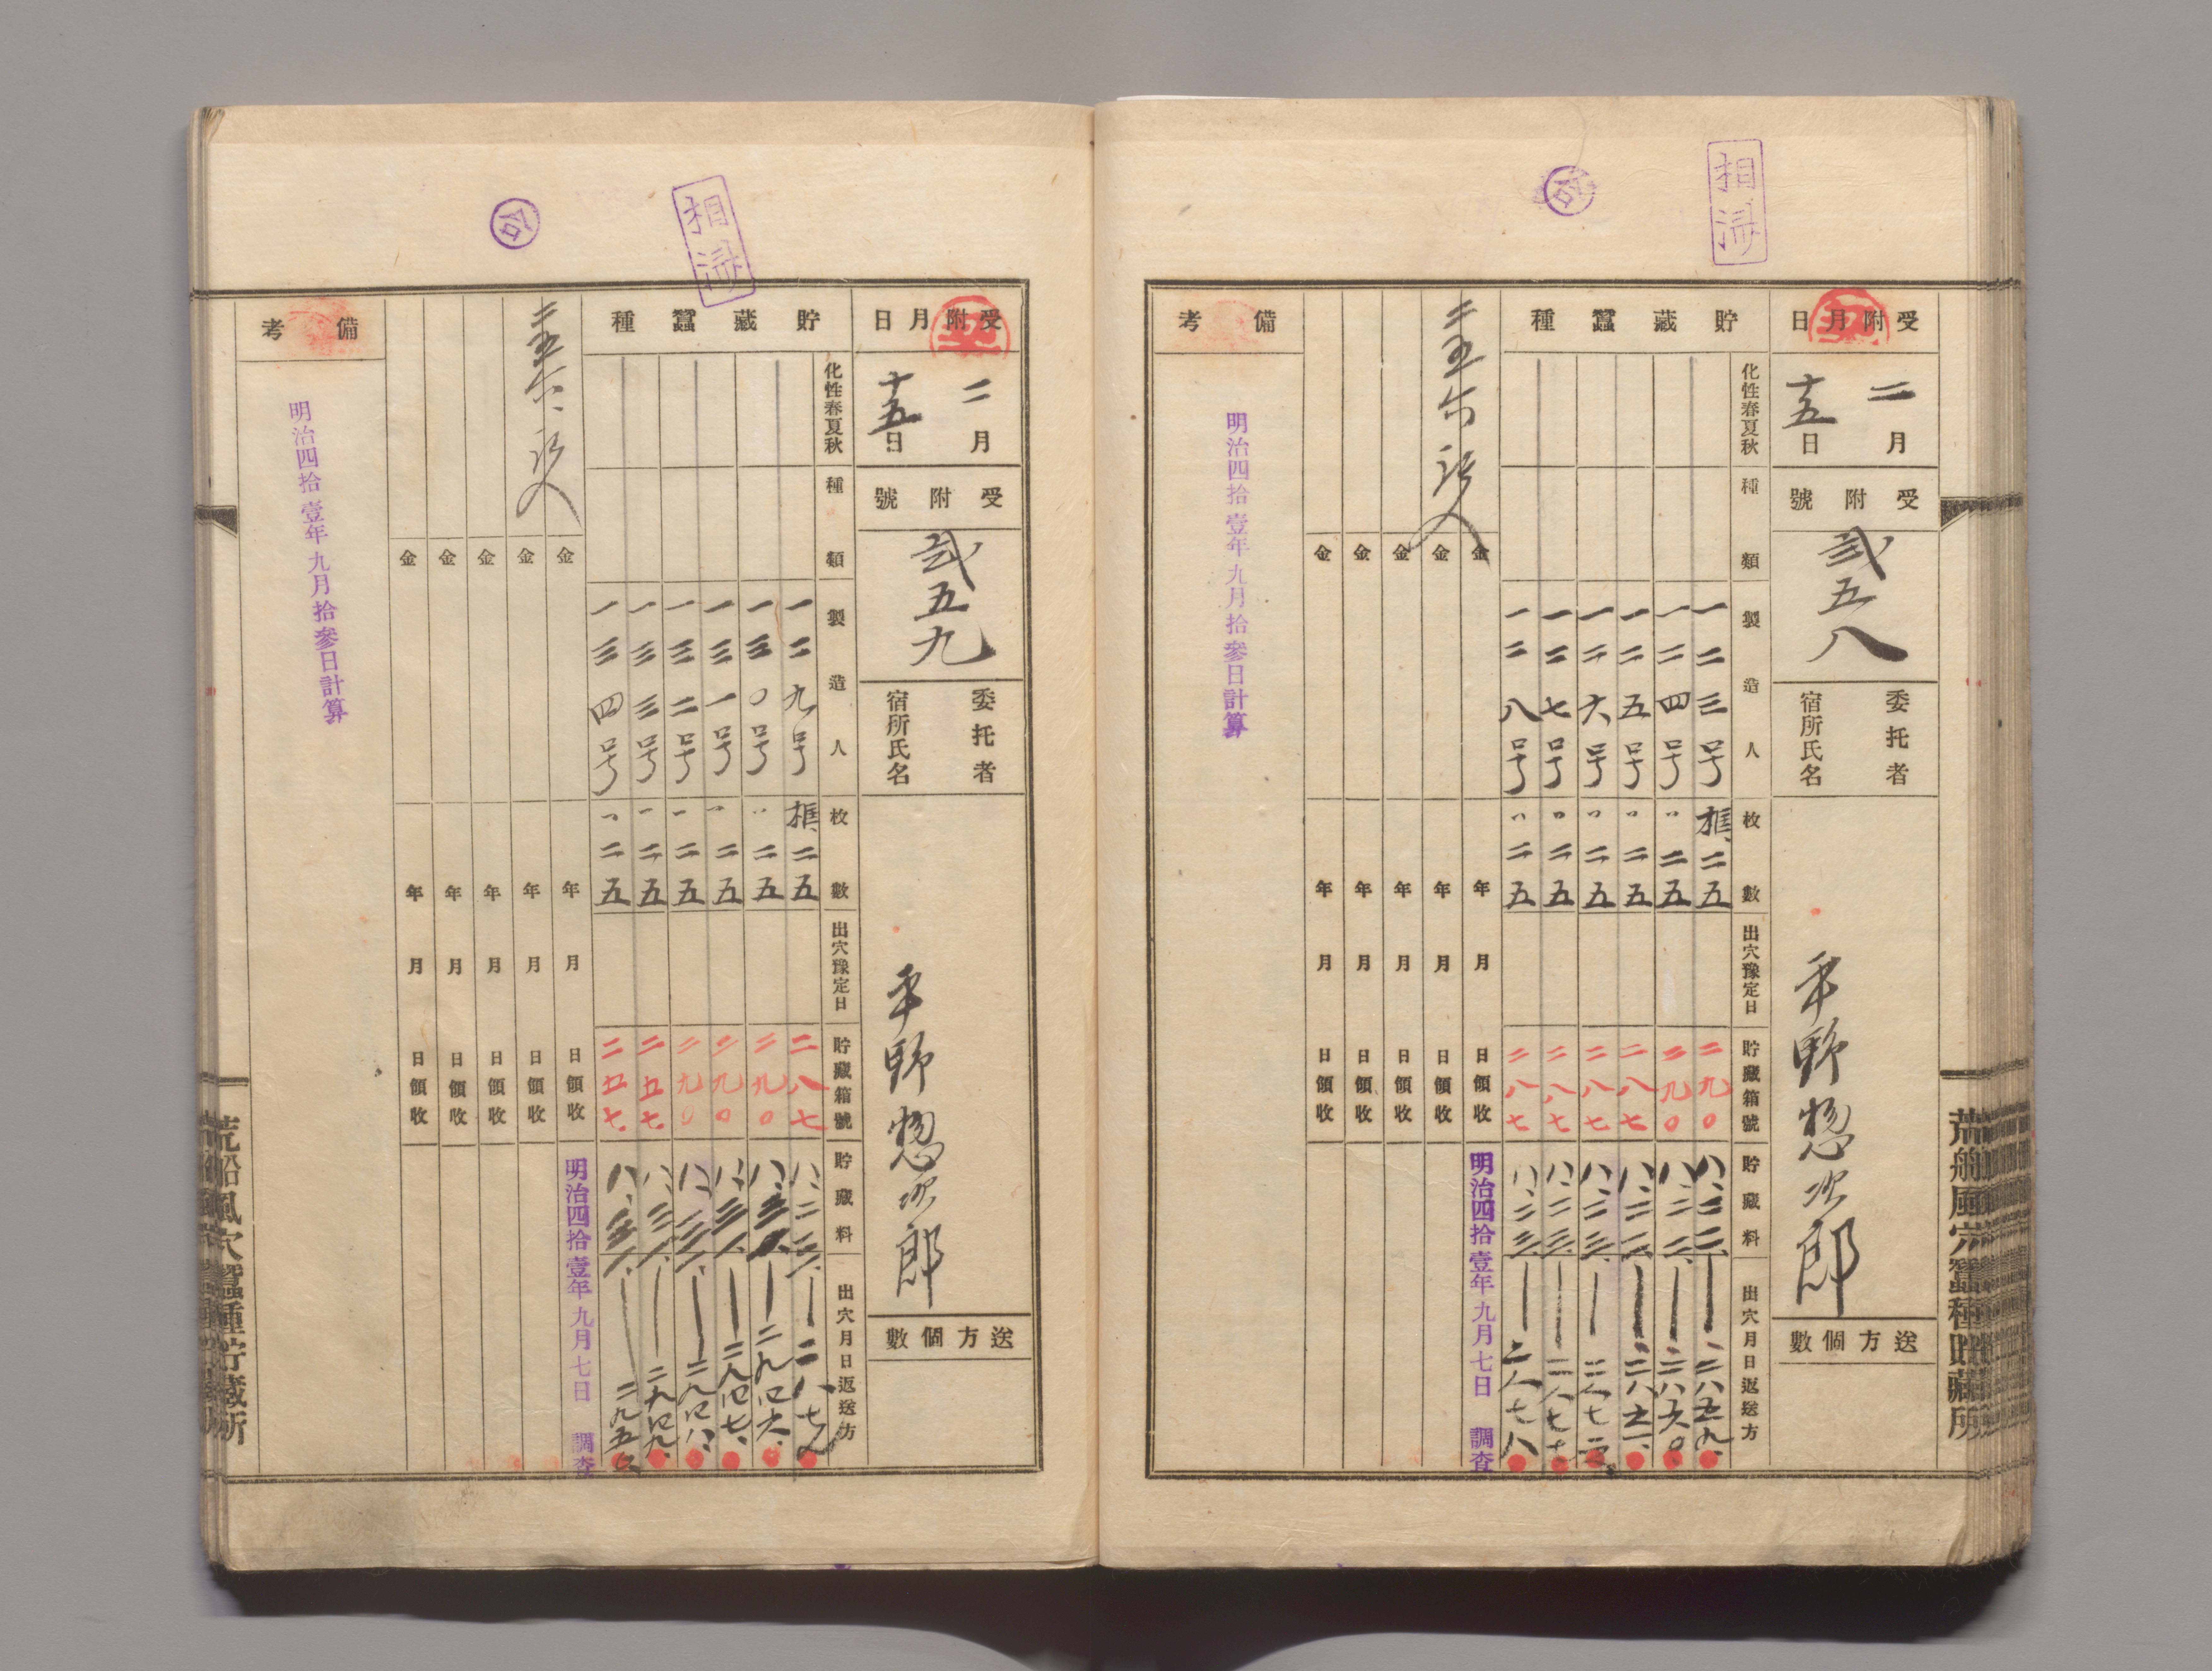 相済
受附月日
二月
十五日
受附號
弐五八
委托者
宿所氏名
平野惣次郎
送方個數
貯藏蠶種
化性春夏秋
種類
製造人
枚數
出穴豫定日
貯藏箱號
貯藏料
出穴月日返送方
一二三号 框、二五 二九〇 二八五九、
一二四号 〃 二五 二九〇 二八六〇、
一二五号 〃 二五 二八七 二八六一、
一二六号 〃 二五 二八七
一二七号 〃 二五 二八七 二八七七
一二八号 〃 二五 二八七 二八七八
明治四拾壹年九月七日 調査
二五六
金 年 月 日領收
金 年 月 日領收
金 年 月 日領收
金 年 月 日領收
金 年 月 日領收
備考
明治四拾壹年九月拾參日計算
荒船風穴蠶種貯藏所
相済
受附月日
二月
十五日
受附號
弐五九
委托者
宿所氏名
平野惣次郎
送方個數
貯藏蠶種
化性春夏秋
種類
製造人
枚數
出穴豫定日
貯藏箱號
貯藏料
出穴月日返送方
一二九号 框、二五 二八七
一三〇号 〃 二五 二九〇 二九四六、
一三一号 〃 二五 二九〇 二九四七、
一三二号 〃 二五 二九〇 二九四八、
一三三号 〃 二五 二五七 二九四九、
一三四号 〃 二五 二五七 二九五〇
明治四拾壹年九月七日 調査
二五六
金 年 月 日領收
金 年 月 日領收
金 年 月 日領收
金 年 月 日領收
金 年 月 日領收
備考
明治四拾壹年九月拾參日計算
荒船風穴蠶種貯藏所